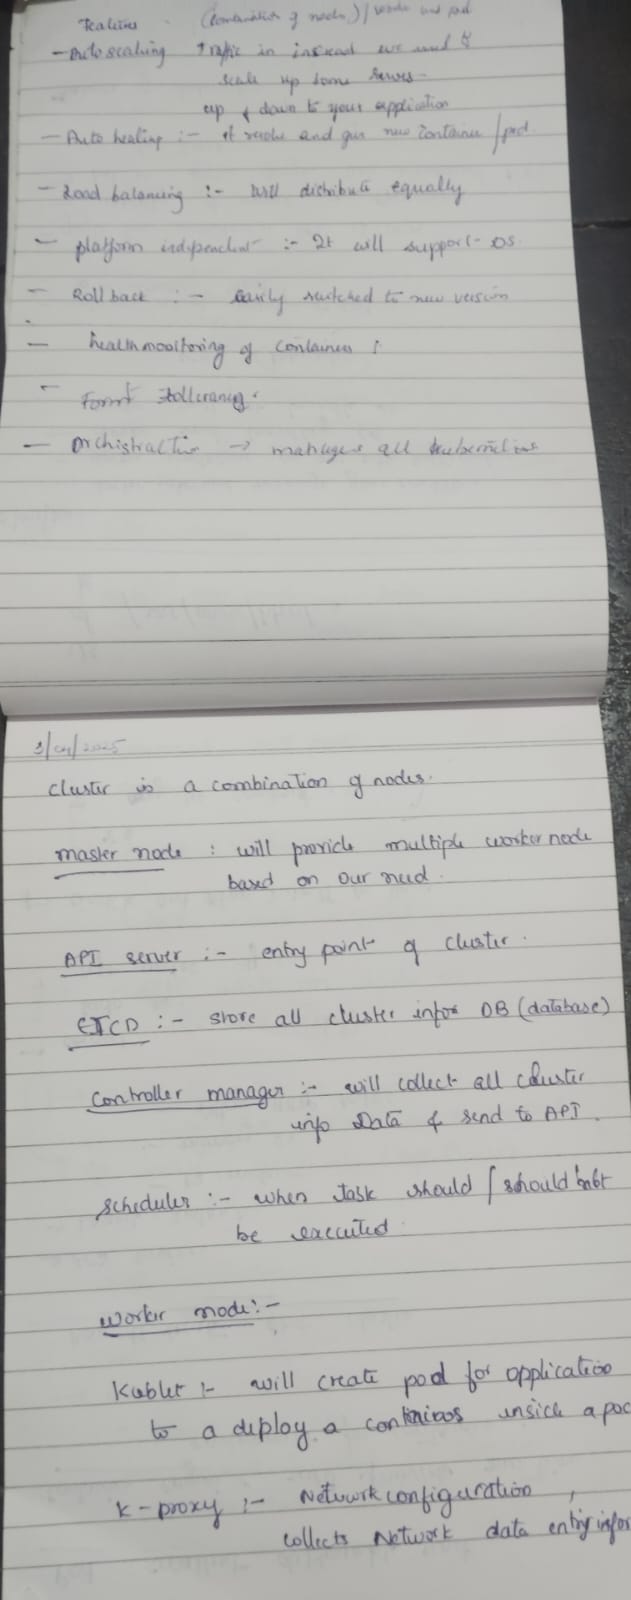 features (Combination of nodes) / node and pod
- Auto scaling Traffic in instead we need to
scale up some servers
up & down to your application
- Auto healing :- It and give new container / pod
- Load balancing :- will distribute equally
- platform independent :- It will support OS
- Roll back :- easily switched to new version
- health monitoring of containers
- tollerancy.
- Orchistraction → manages all
3/ /2025
Cluster is a combination of nodes.
master node : will provide multiple worker node
based on our need.
API server :- entry point of cluster.
ETCD :- store all cluster infor DB (database)
Controller manager :- will collect all cluster
info Data & send to API.
scheduler :- when task should / should not
be executed.
worker node :-
Kublet :- will create pod for application
to a deploy a inside a poc
K-proxy :- Network configuration,
collects Network data entry infor